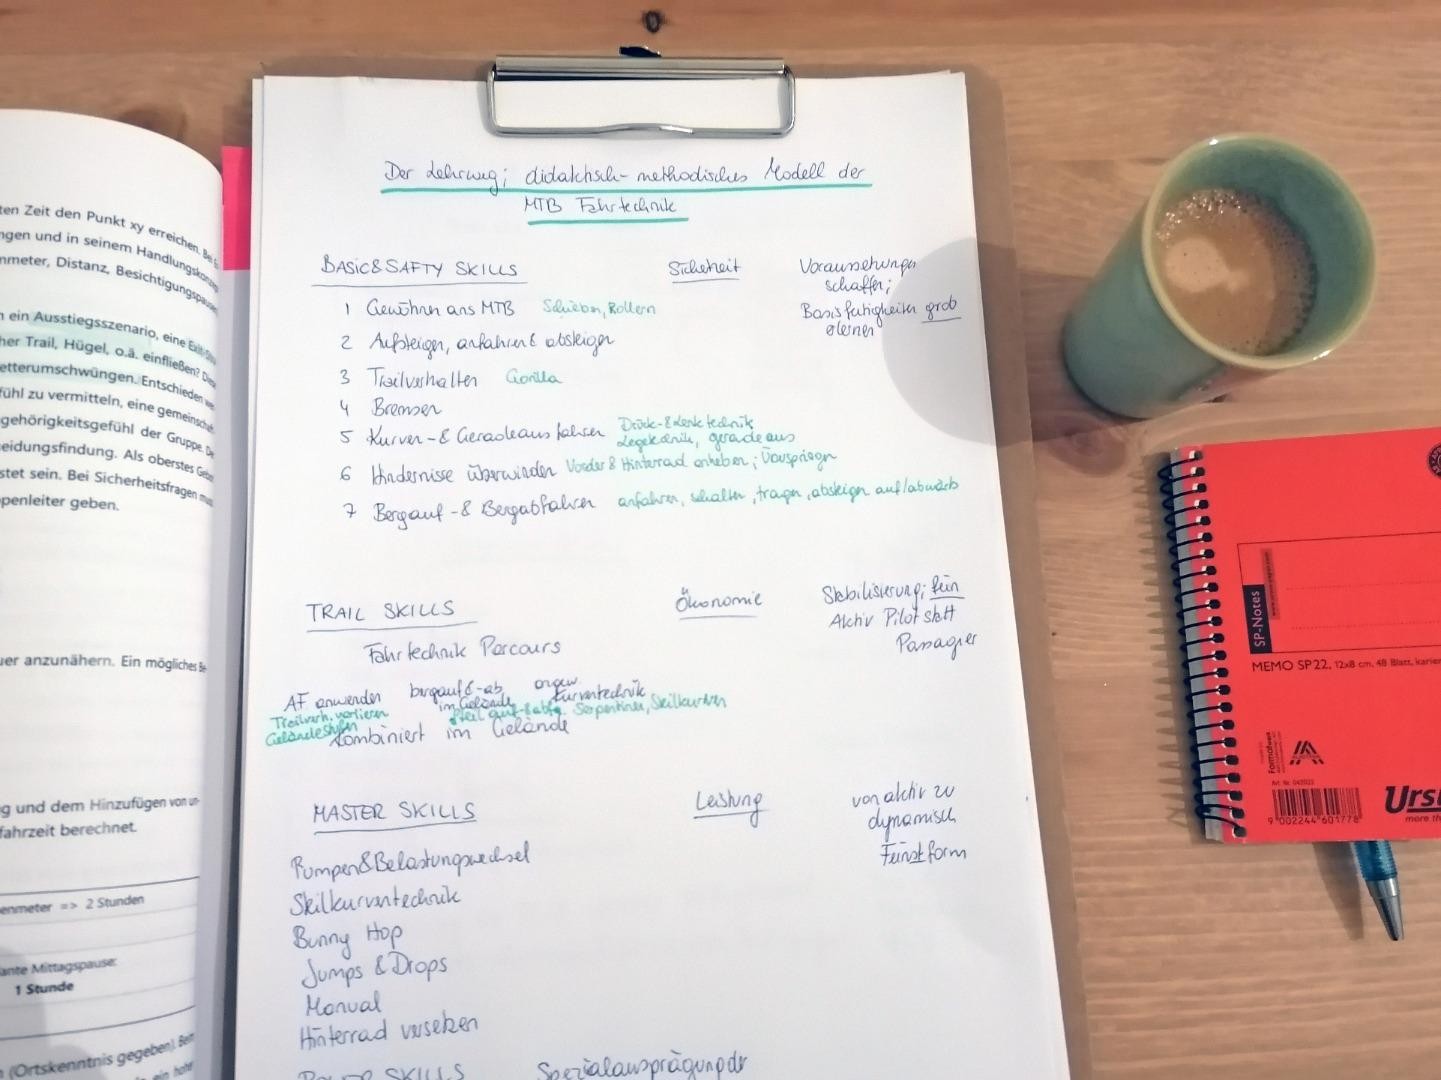 ten Zeit den Punkt xy erreichen. Bei
ngen und in seinem Handlungskonzep
nmeter, Distanz, Besichtigungspause
n ein Ausstiegsszenario, eine Exit-
her Trail, Hügel, o.ä. einfließen?
etterumschwüngen. Entschieden
fühl zu vermitteln, eine gemeinscha
gehörigkeitsgefühl der Gruppe.
eidungsfindung. Als oberstes
stet sein. Bei Sicherheitsfragen
penleiter geben.
uer anzunähern. Ein mögliches Be
g und dem Hinzufügen von un-
fahrzeit berechnet.
enmeter => 2 Stunden
ante Mittagspause:
1 Stunde
(Ortskenntnis gegeben). Beim
ein hoher
Der Lehrweg; didaktisch-methodisches Modell der
MTB Fahrtechnik
BASIC&SAFTY SKILLS Sicherheit Voraussetzungen
schaffen;
1 Gewöhnen ans MTB Schieben, Rollern Basisfähigkeiten grob
erlernen
2 Aufsteigen, anfahren & absteigen
3 Trailverhalten Gorilla
4 Bremsen
5 Kurven-& Geradeausfahren Drück-& Lenktechnik
Legetechnik, geradeaus
6 Hindernisse überwinden Vorder & Hinterrad anheben;
7 Bergauf-& Bergabfahren anfahren, schalten, tragen, absteigen auf/abwärts
TRAIL SKILLS Ökonomie Stabilisierung; fein
Aktiv Pilot statt
Passagier
Fahrtechnik Parcours
AF anwenden bergauf&-ab angew.
im Gelände Kurventechnik
Trailverh. variieren Steil auf-&abfa. Serpentinen, Steilkurven
Geländestufen
kombiniert im Gelände
MASTER SKILLS Leistung von aktiv zu
dynamisch
Feinstform
Pumpen&Belastungswechsel
Steilkurventechnik
Bunny Hop
Jumps & Drops
Manual
Hinterrad versetzen
SKILLS Spezialausprägung der
SP-Notes
MEMO SP22, 12x8 cm, 48 Blatt, karier
Formatwerk
AUSTRIA
Art. Nr. 042022
9 002244 601778
Urs
more th